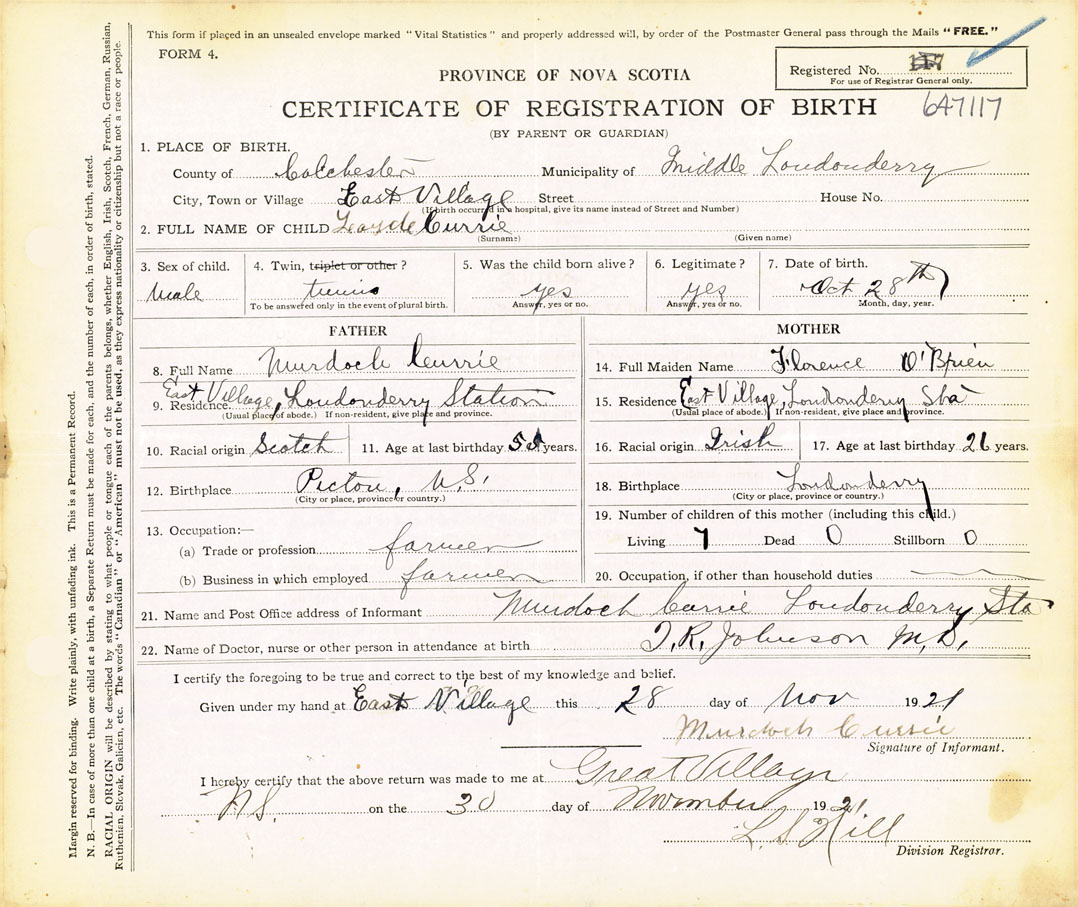 This form if placed in an unsealed envelope marked "Vital Statistics" and properly addressed will, by order of the Postmaster General pass through the Mails "FREE."
FORM 4.
PROVINCE OF NOVA SCOTIA
Registered No. 117
For use of Registrar General only.
CERTIFICATE OF REGISTRATION OF BIRTH 647117
(BY PARENT OR GUARDIAN)
1. PLACE OF BIRTH.
County of Colchester Municipality of Middle Londonderry
City, Town or Village East Village Street House No.
(If birth occurred in a hospital, give its name instead of Street and Number)
2. FULL NAME OF CHILD Currie
(Surname) (Given name)
3. Sex of child. 4. Twin, triplet or other? 5. Was the child born alive? 6. Legitimate? 7. Date of birth.
Male twins yes yes Oct 28th
To be answered only in the event of plural birth. Answer, yes or no. Answer, yes or no. Month, day, year.
FATHER
8. Full Name Murdoch Currie
9. Residence East Village, Londonderry Station
(Usual place of abode.) If non-resident, give place and province.
10. Racial origin Scotch 11. Age at last birthday years.
12. Birthplace Pictou, N.S.
(City or place, province or country.)
13. Occupation:—
(a) Trade or profession farmer
(b) Business in which employed farmer
MOTHER
14. Full Maiden Name Florence O'Brien
15. Residence East Village, Londonderry Sta
(Usual place of abode.) If non-resident, give place and province.
16. Racial origin Irish 17. Age at last birthday 26 years.
18. Birthplace Londonderry
(City or place, province or country.)
19. Number of children of this mother (including this child.)
Living 7 Dead 0 Stillborn 0
20. Occupation, if other than household duties
21. Name and Post Office address of Informant Murdoch Currie Londonderry Sta
22. Name of Doctor, nurse or other person in attendance at birth T. R. Johnson M.D.
I certify the foregoing to be true and correct to the best of my knowledge and belief.
Given under my hand at East Village this 28 day of Nov 1921
Murdoch Currie
Signature of Informant.
I hereby certify that the above return was made to me at Great Village
N.S. on the 30 day of November 1921
L S Hill
Division Registrar.
Margin reserved for binding. Write plainly, with unfading ink. This is a Permanent Record.
N. B.—In case of more than one child at a birth, a Separate Return must be made for each, and the number of each, in order of birth, stated.
RACIAL ORIGIN will be described by stating to what people or tongue each of the parents belongs, whether English, Irish, Scotch, French, German, Russian,
Ruthenian, Slovak, Galician, etc. The words "Canadian" or "American" must not be used, as they express nationality or citizenship but not a race or people.